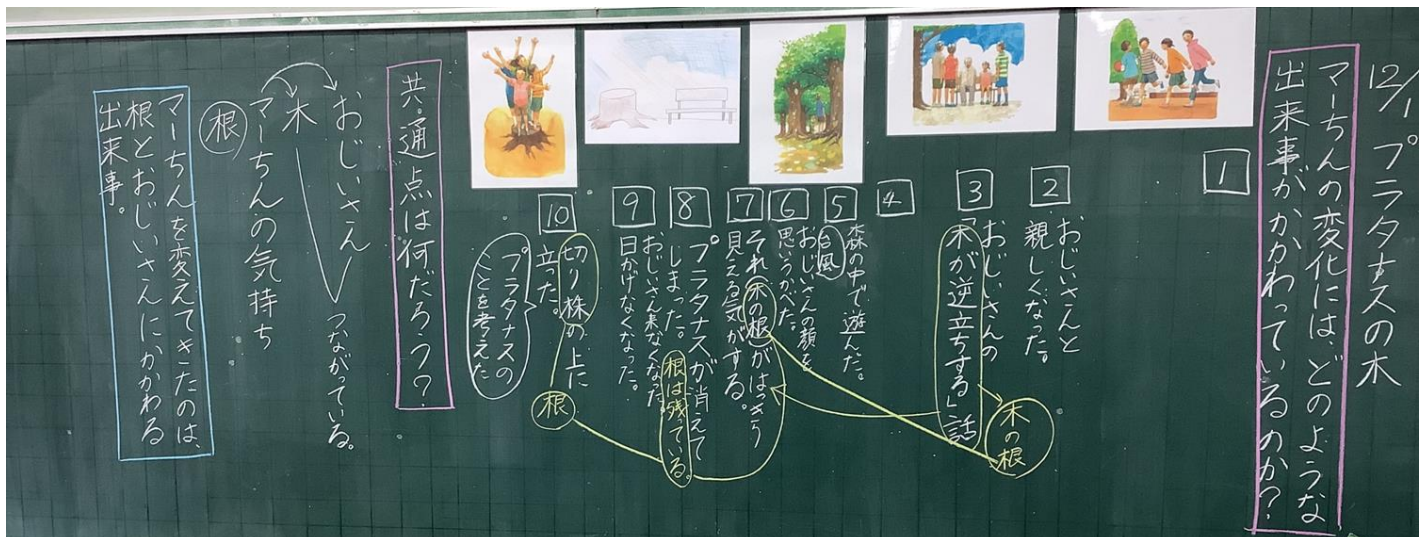 12/1 プラタナスの木
マーちんの変化には、どのような
出来事がかかわっているのか?
1
2
おじいさんと
親しくなった。
3
おじいさんの
「木が逆立ちする」話
木の根
4
森の中で遊んだ。
5
台風
おじいさんの顔を
6
思いうかべた。
7
それ木の根がはっきり
見える気がする。
8
プラタナスが消えて
しまった。
根は残っている。
9
おじいさん来なくなった
日かげなくなった。
10
切り株の上に
立った。
根
プラタナスの
ことを考えた
共通点は何だろう?
おじいさん
つながっている。
木
マーちんの気持ち
根
マーちんを変えてきたのは、
根とおじいさんにかかわる
出来事。